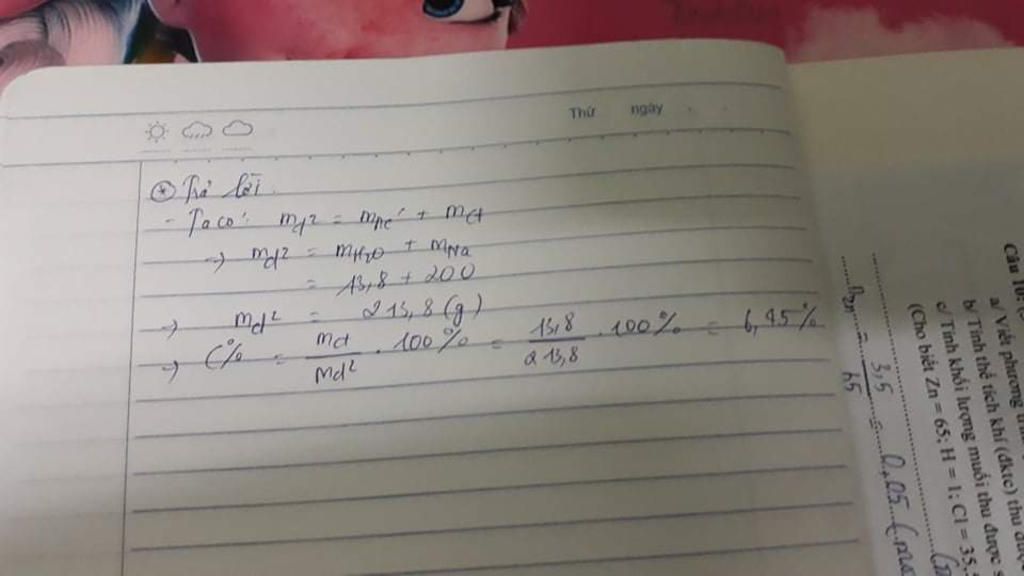 Thứ ngày
* Trả lời.
- Ta có: md² = mnc' + mct
→ md² = mH₂O + mNa
= 13,8 + 200
→ md² = 213,8 (g)
→ C% = mct / md² . 100% = 13,8 / 213,8 . 100% = 6,45%
Câu 10:
a/ Viết phương
b/ Tính thể tích khí (đktc) thu
c/ Tính khối lượng muối thu được
(Cho biết Zn = 65; H = 1; Cl = 35,
nZn = 3,5 / 65 = 0,05